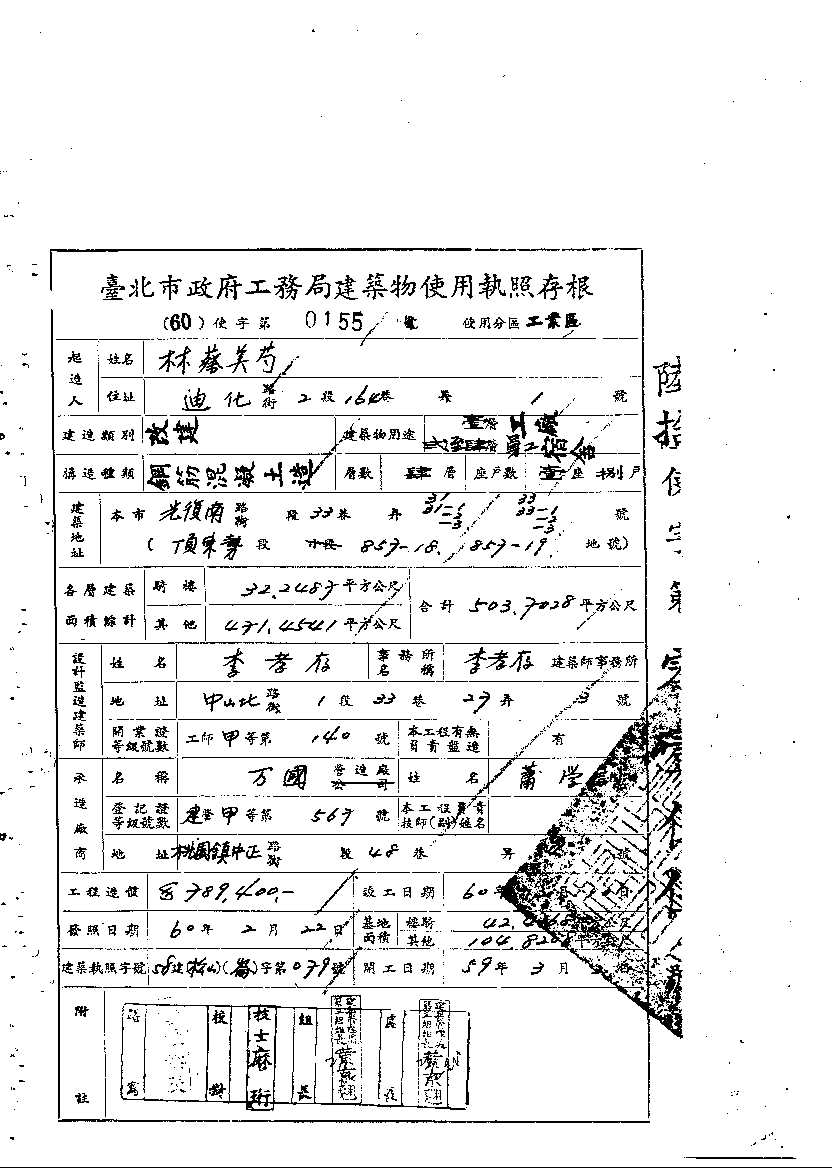 臺北市政府工務局建築物使用執照存根
(60)使字第 0155 號 使用分區 工業區
起造人 姓名 林蔡美芍
住址 迪化 路街 2段 164巷 弄 1 號
建造類別 改建 建築物用途 壹層 工廠 員工宿舍
構造種類 鋼筋混凝土造 層數 肆 層 座戶數 壹 座 捌 戶
建築地址 本市 光復南 路街 段 33巷 弄 31 31-1 -2 -3 33 33-1 -2 -3 號
( 頂東勢 段 小段 857-18. 857-19 地號)
各層建築面積綜計 騎樓 32.2487 平方公尺 合計 503.7028 平方公尺
其他 471.4541 平方公尺
設計監造建築師 姓名 李孝存 事務所名稱 李孝存 建築師事務所
地址 中山北 路街 1 段 33 巷 27 弄 3 號
開業證等級號數 工師 甲 等第 140 號 本工程有無負責監造 有
承造廠商 名稱 万國 營造廠公司 姓名 蕭學
登記證等級號數 建登 甲 等第 567 號 本工程負責技師(副)姓名
地址 桃園鎮中正 路街 段 48 巷 弄 號
工程造價 789,400.- 竣工日期 60年 月 日
發照日期 60年 2月 22日 基地面積 樓騎 42. 平方公尺
其他 104.820 平方公尺
建築執照字號 58建(松山)(崙)字第 079 號 開工日期 59年 3月 日
附註 校對 技士麻珩 組長 處長
陸拾使字第